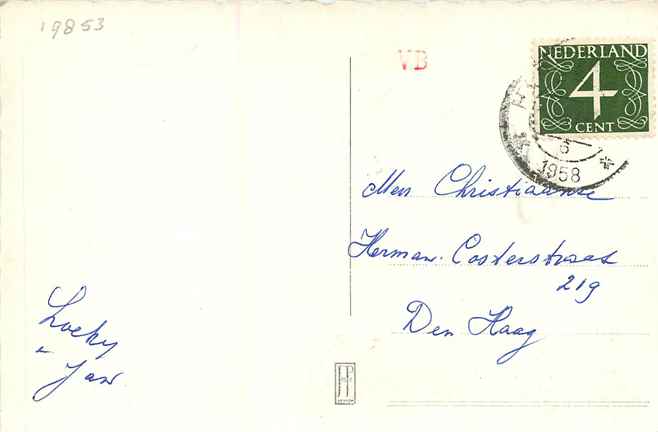 19853
VB
NEDERLAND
4
CENT
5
1958
Mevr Christiaanse
Herman. Costerstraat
219
Den Haag
Loeky
e
Jan